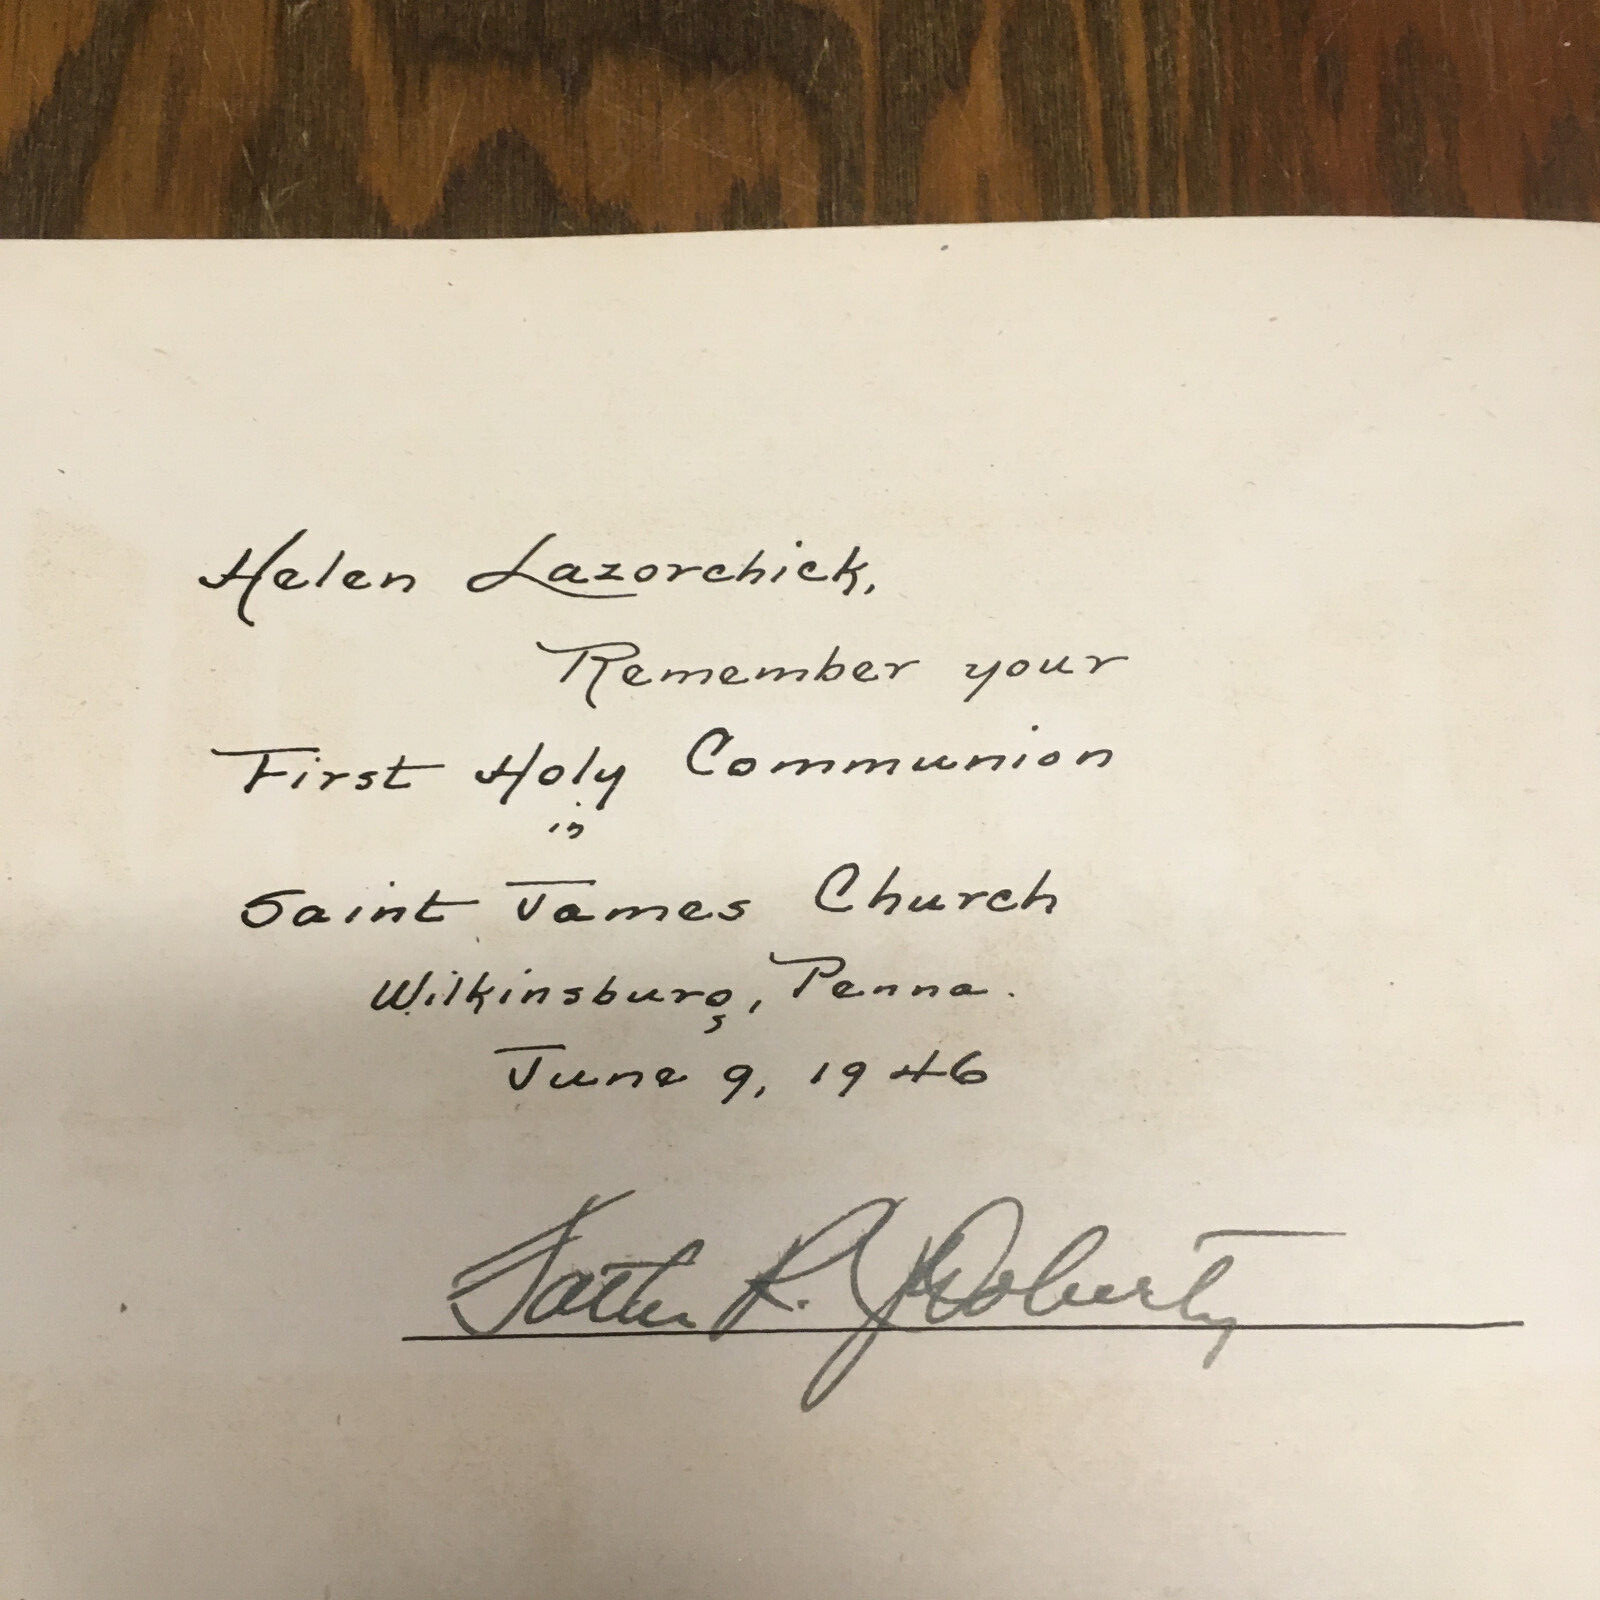 Helen Lazorchick,
Remember your
First Holy Communion
in
Saint James Church
Wilkinsburg, Penna.
June 9, 1946
Father R. J.